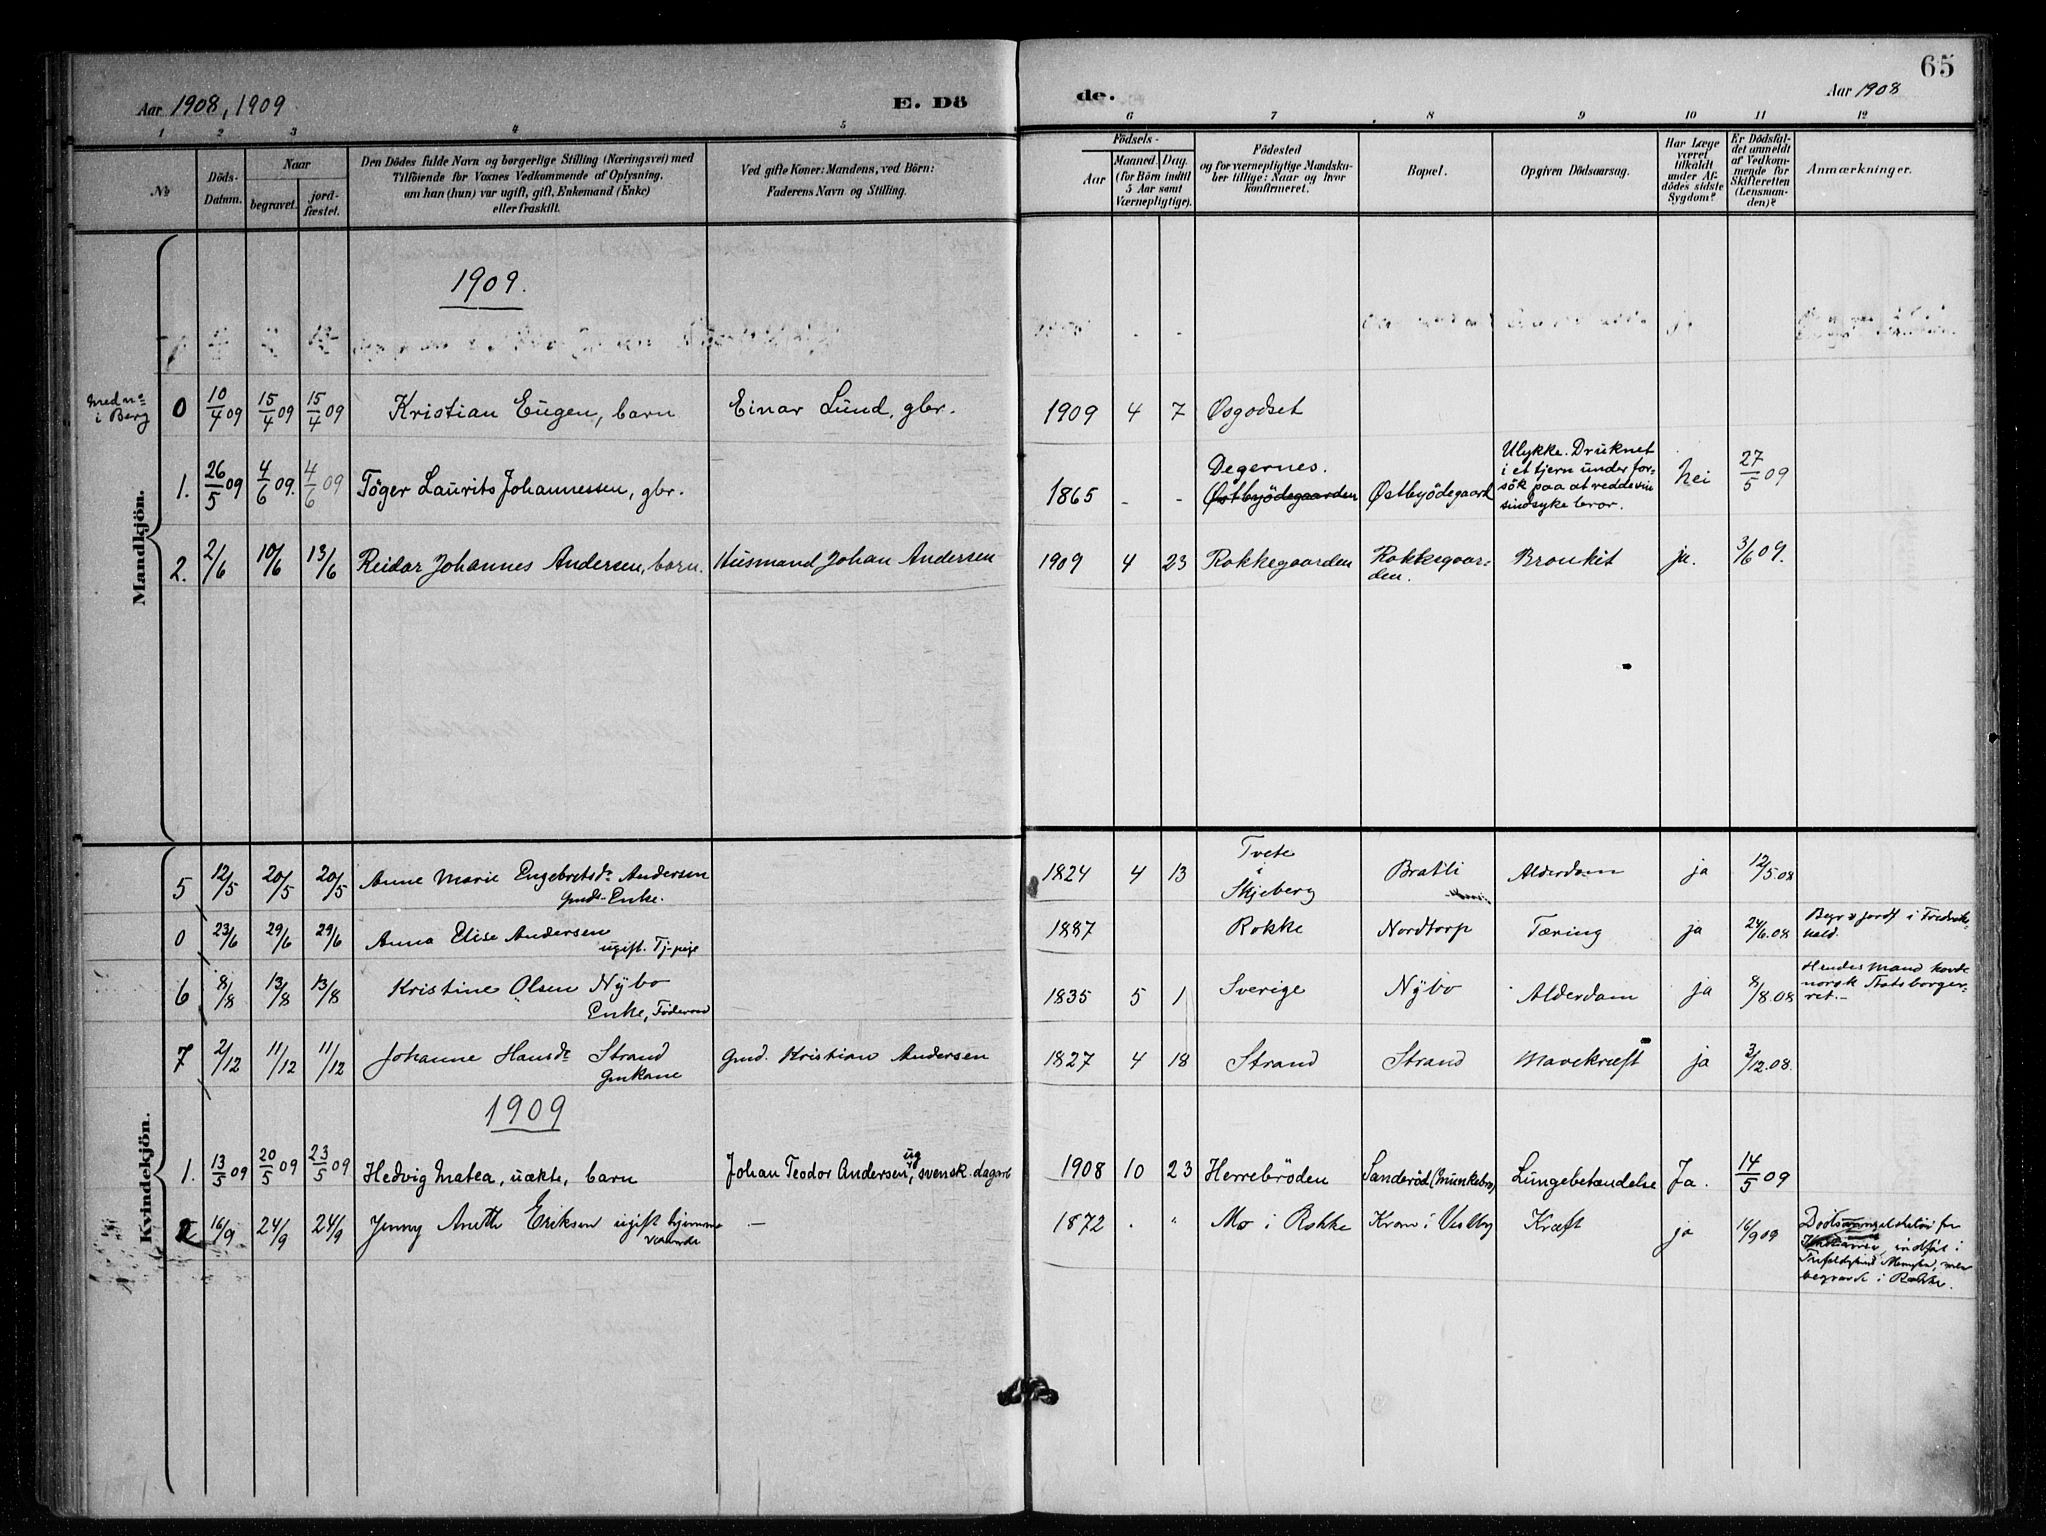 65
Aar 1908, 1909
E. Dö
de.
Aar 1908
1 2 3 4 5 6 7 8 9 10 11 12
№
Döds-
Datum.
Naar
begravet.
jord-
fæstet.
Den Dödes fulde Navn og borgerlige Stilling (Næringsvei) med
Tilföiende for Voxnes Vedkommende af Oplysning,
om han (hun) var ugift, gift, Enkemand (Enke)
eller fraskilt.
Ved gifte Koner: Mandens, ved Börn:
Faderens Navn og Stilling.
Födsels-
Aar
Maaned.
Dag.
(for Börn indtil
5 Aar samt
Værnepligtige).
Födested
og for værnepligtige Mandska-
ber tillige: Naar og hvor
konfirmeret.
Bopæl.
Opgiven Dödsaarsag.
Har Læge
været
tilkaldt
under Af-
dödes sidste
Sygdom?
Er Dödsfal-
det anmeldt
af Vedkom-
mende for
Skifteretten
(Lensman-
den)?
Anmærkninger.
Mandkjön.
1909.
Med no
i Berg
0 10/4 09 15/4 09 15/4 09 Kristian Eugen, barn Einar Lund, gbr. 1909 4 7 Osgodset
1. 26/5 09 4/6 09. 4/6 09 Töger Laurits Johannessen, gbr. 1865 - - Degernes.
Østbyödegaarden Østbyödegaard
Ulykke. Druknet
i et tjern under for-
sök paa at redde sin
sindsyke bror.
Nei 27/5 09
2. 2/6 10/6 13/6 Reidar Johannes Andersen, barn. Husmand Johan Andersen 1909 4 23 Rokkegaarden Rokkegaar-
den. Bronkit ja. 3/6 09.
Kvindekjön.
5 12/5 20/5 20/5 Anne Marie Engebretsdr Andersen
Gmds. Enke. 1824 4 13 Tvete
i
Skjeberg Bratli Alderdom ja 12/5.08
0 23/6 29/6 29/6 Anna Elise Andersen
ugift. Tj-pige 1887 Rokke Nordtorp Tæring ja 24/6.08 Begr & jordf i Fredriks-
hald.
6 8/8 13/8 13/8 Kristine Olsen Nybo
Enke, Föderaad 1835 5 1 Sverige Nybo Alderdom ja 8/8.08 Hendes Mand havde
norsk Statsborger-
ret.-
7 2/12 11/12 11/12 Johanne Hansdr Strand
Gmkone Gmd. Kristian Andersen 1827 4 18 Strand Strand Mavekræft ja 3/12.08.
1909
1. 13/5 09 20/5 09 23/5 09 Hedvig Matea, uækte, barn Johan Teodor Andersen, ug svensk dagarb 1908 10 23 Herrebröden Sanderöd (Munkebro) Lungebetændelse Ja. 14/5 09
2 16/9 24/9 24/9 Jenny Anette Eriksen ugift hjemme
værende — 1872 . " Mo i Rokke Kroni Vestby Kræft ja 16/9 09 indfört i
Trefoldighed Menighet, men
begravet i Rokke.